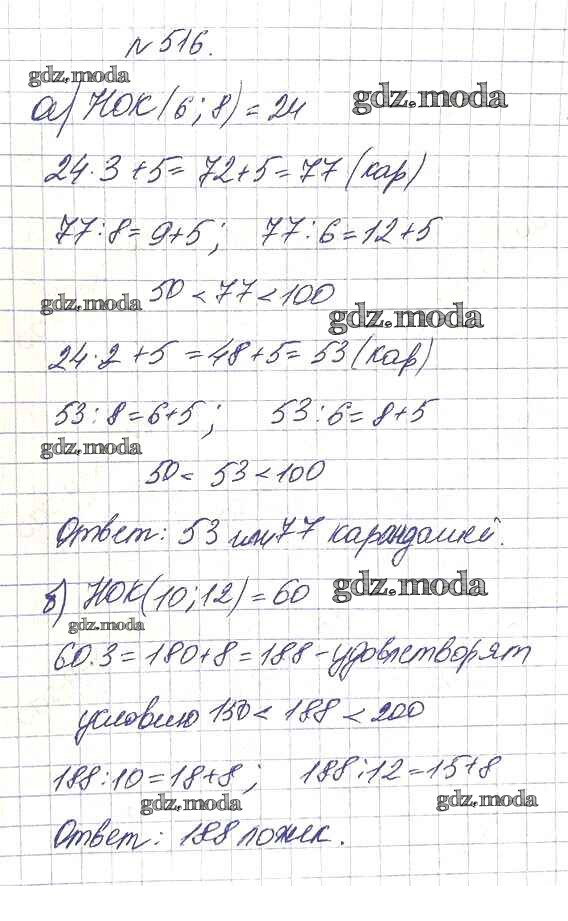 №516.
gdz.moda
а) НОК(6;8)=24 gdz.moda
24·3+5=72+5=77(кар)
77:8=9+5; 77:6=12+5
gdz.moda 50<77<100
gdz.moda
24·2+5=48+5=53(кар)
53:8=6+5; 53:6=8+5
gdz.moda
50<53<100
Ответ: 53 или 77 карандашей.
б) НОК(10;12)=60 gdz.moda
gdz.moda
60·3=180+8=188-удовлетворят
условию 150<188<200
188:10=18+8; 188:12=15+8
gdz.moda gdz.moda
Ответ: 188 ложек.